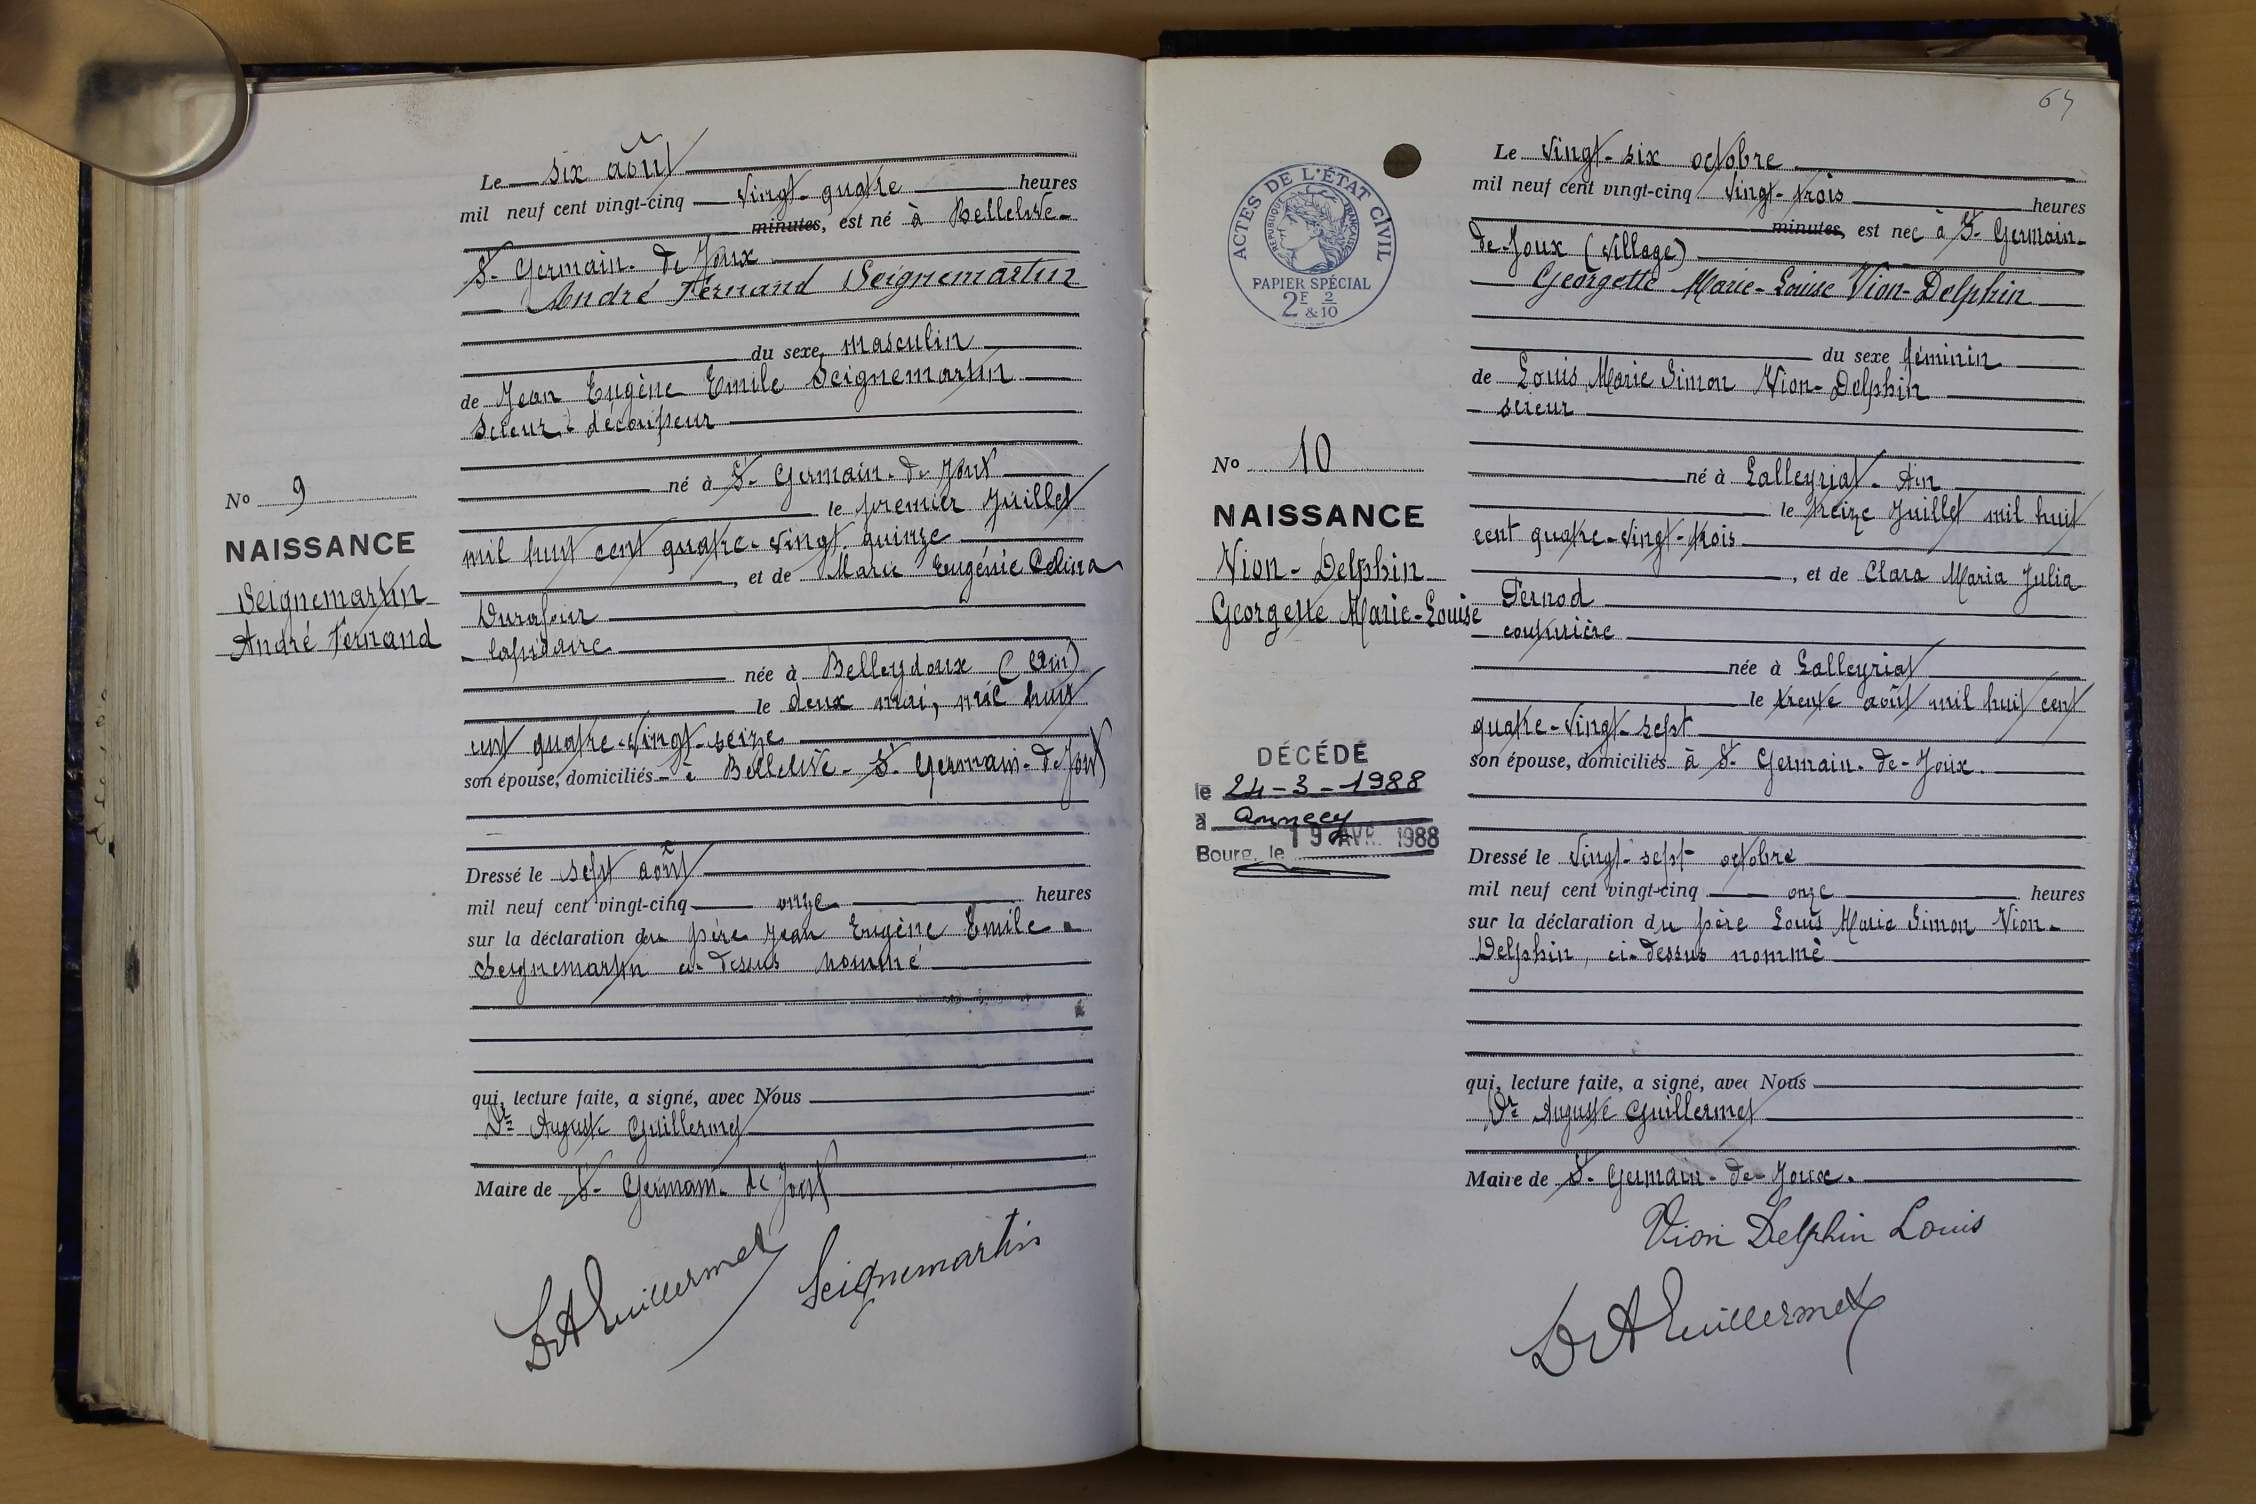 Le six août
mil neuf cent vingt-cinq vingt-quatre heures
minutes, est né à Bellerive-
St Germain-de Joux
André Fernand Seignemartin
du sexe masculin
de Jean Eugène Emile Seignemartin
scieur & découpeur
né à St Germain-de-Joux
le premier Juillet
mil huit cent quatre-vingt quinze
, et de Marie Eugénie Celina
Durafour
lapidaire
née à Belleydoux (Ain)
le deux mai, mil huit
cent quatre-vingt-seize
son épouse, domiciliés à Bellerive-St Germain-de Joux
Dressé le sept août
mil neuf cent vingt-cinq onze heures
sur la déclaration du père Jean Eugène Emile
Seignemartin ci-dessus nommé
qui, lecture faite, a signé, avec Nous
Dr Auguste Guillermet
Maire de St Germain-de Joux
DrA Guillermet
Seignemartin
No 9
NAISSANCE
Seignemartin
André Fernand
64
ACTES DE L'ÉTAT CIVIL
RÉPUBLIQUE FRANÇAISE
PAPIER SPÉCIAL
2F & 2/10
No 10
NAISSANCE
Vion-Delphin
Georgette Marie-Louise
DÉCÉDÉ
le 24-3-1988
à Annecy
Bourg, le 19 AVR. 1988
Le vingt-six octobre
mil neuf cent vingt-cinq vingt-trois heures
minutes, est née à St Germain-
de-Joux (village)
Georgette Marie-Louise Vion-Delphin
du sexe féminin
de Louis Marie Simon Vion-Delphin
scieur
né à Lalleyriat-Ain
le treize Juillet mil huit
cent quatre-vingt-trois
, et de Clara Maria Julia
Fernod
couturière
née à Lalleyriat
le trente août mil huit cent
quatre-vingt-sept
son épouse, domiciliés à St Germain-de-Joux.
Dressé le vingt-sept octobre
mil neuf cent vingt-cinq onze heures
sur la déclaration du père Louis Marie Simon Vion-
Delphin, ci-dessus nommé
qui, lecture faite, a signé, avec Nous
Dr Auguste Guillermet
Maire de St Germain-de-Joux.
Vion Delphin Louis
DrA Guillermet